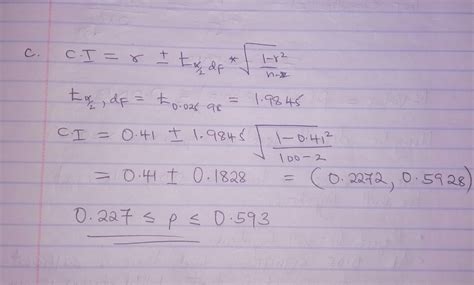 c. C.I = r ± t α/2, dF * √(1-r² / n-2)
t α/2, dF = t 0.025 98 = 1.9845
CI = 0.41 ± 1.9845 √(1-0.41² / 100-2)
= 0.41 ± 0.1828 = (0.2272, 0.5928)
0.227 ≤ ρ ≤ 0.593